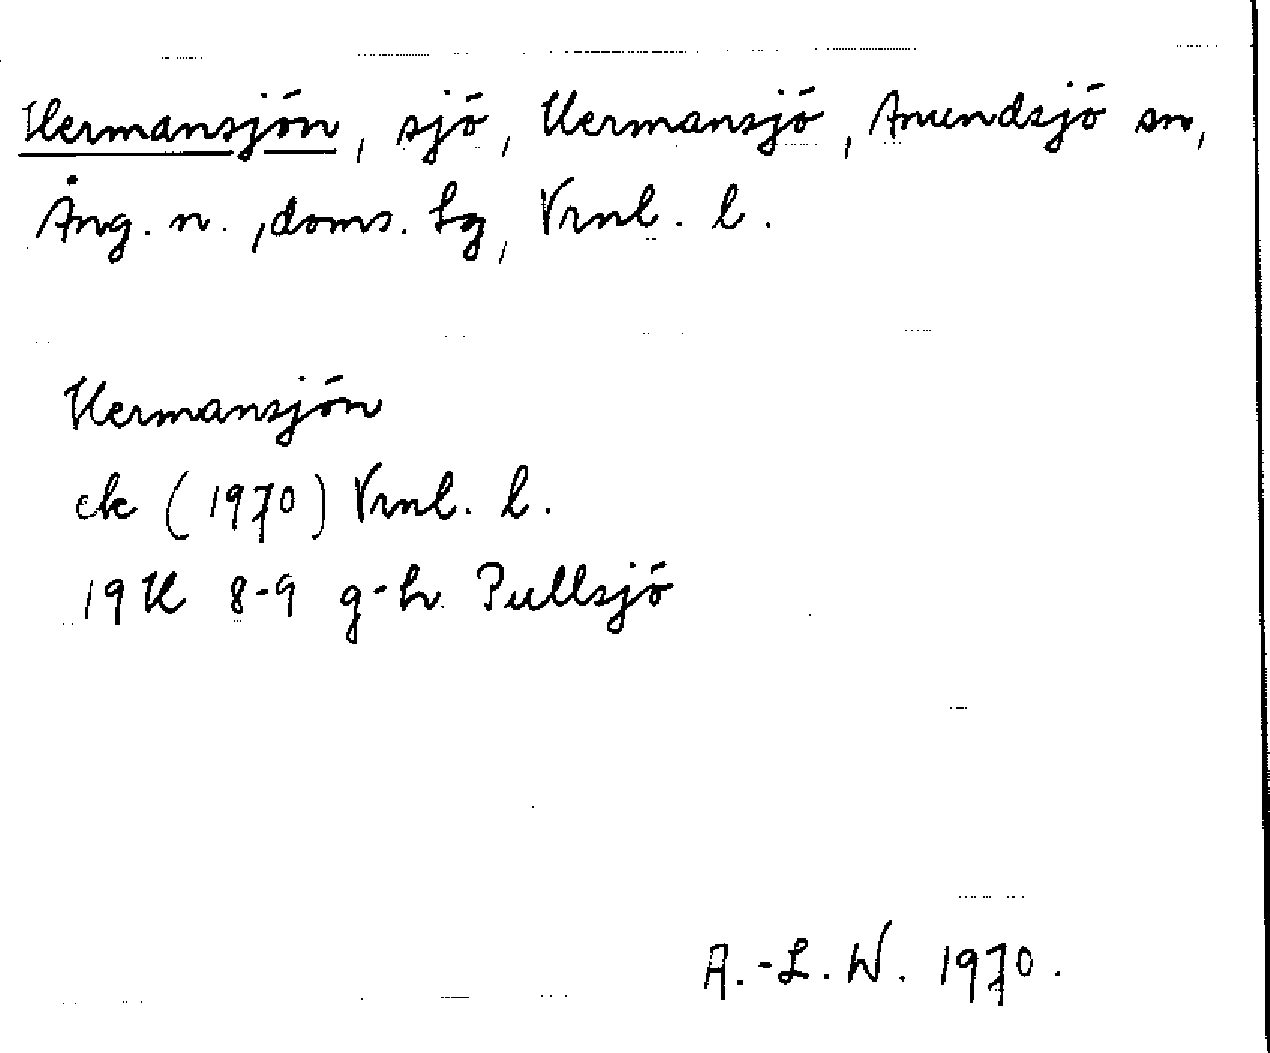 Hermansjön, sjö, Hermansjö, Anundsjö sn,
Ång. n., doms. hg, Vrnl. l.
Hermansjön
ek (1970) Vrnl. l.
19H 8-9 g-h Pullsjö
A.-L. W. 1970.